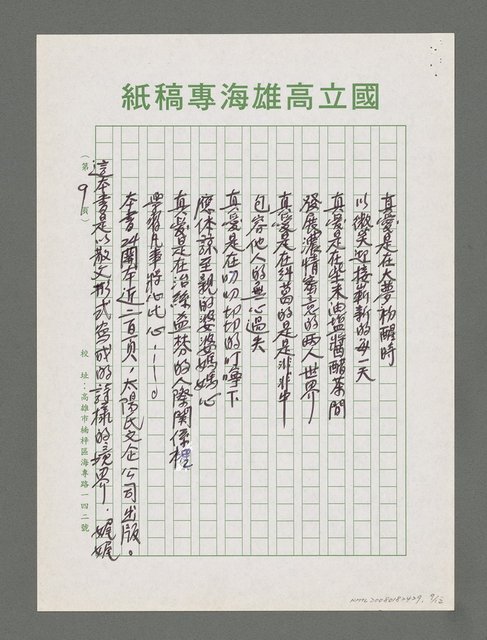 國立高雄海專稿紙
真愛是在大夢初醒時
以微笑迎接嶄新的每一天
真愛是在柴米油鹽醬醋茶間
發展濃情蜜意的兩人世界
真愛是在糾葛的是是非非中
包容他人的無心過失
真愛是在叨叨切切的叮嚀下
應体諒至親的婆婆媽媽心
真愛是在治絲益棼的人際關係裡
學習凡事將心比心……。
本書24開本近二百頁，太陽氏文企公司出版。
這本書是以散文形式寫成的詩樣的境界，娓娓
（第9頁）
校址：高雄市楠梓區海專路一四二號
NMTL20080182429. 9/12